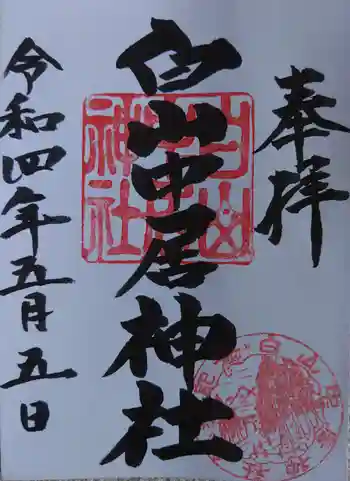 奉拝
白山中居神社
令和四年五月五日
白山中居神社